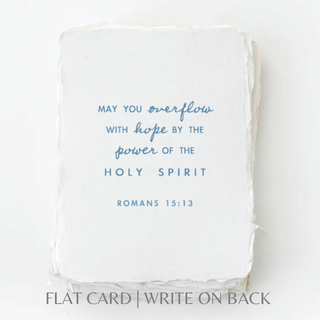 MAY YOU overflow
WITH hope BY THE
power OF THE
HOLY SPIRIT
ROMANS 15:13
FLAT CARD | WRITE ON BACK